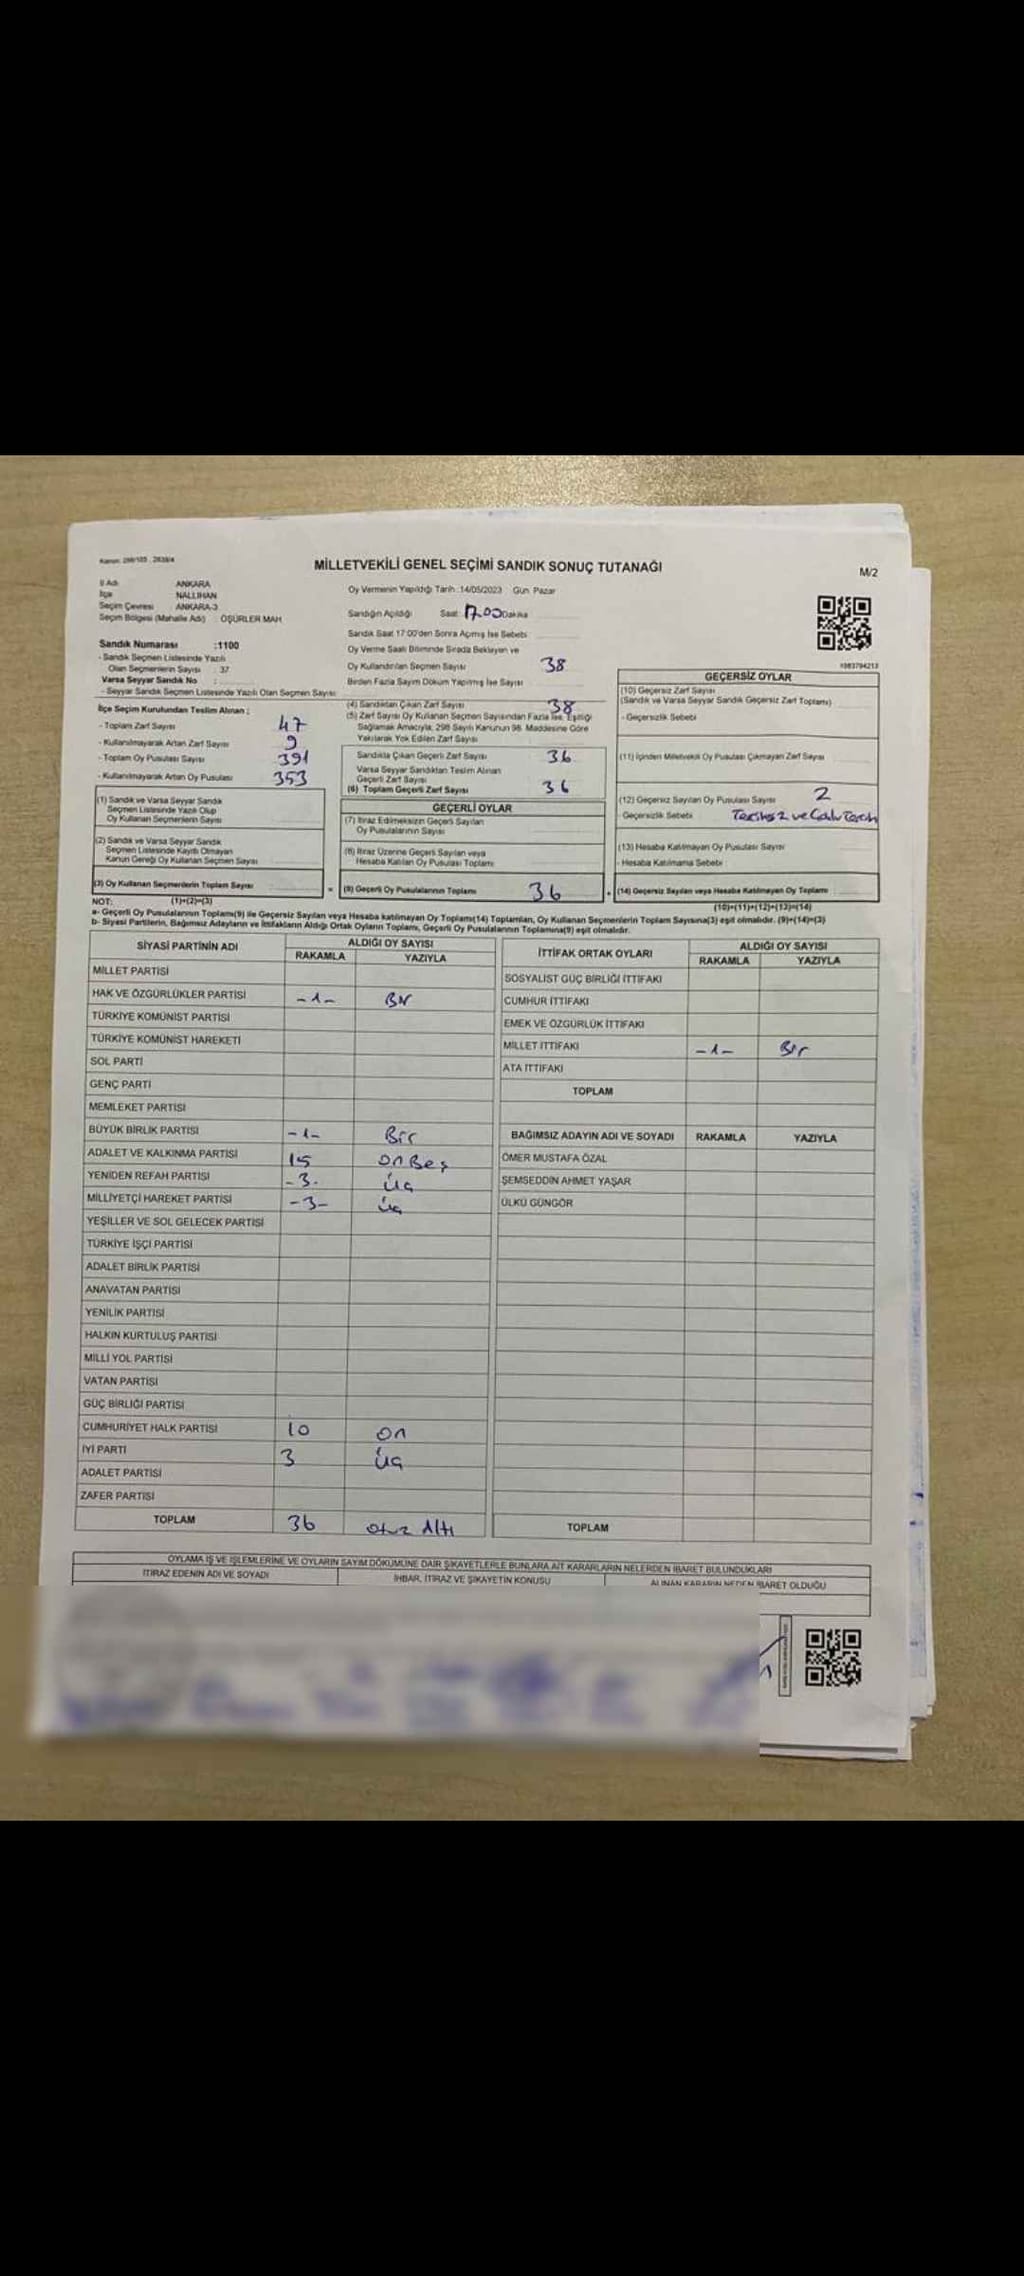 Kanun: 298/105 , 2839/4
MİLLETVEKİLİ GENEL SEÇİMİ SANDIK SONUÇ TUTANAĞI
M/2
İl Adı ANKARA
İlçe NALLIHAN
Seçim Çevresi ANKARA-3
Seçim Bölgesi (Mahalle Adı) : OŞÜRLER MAH
Sandık Numarası :1100
- Sandık Seçmen Listesinde Yazılı
Olan Seçmenlerin Sayısı : 37
Varsa Seyyar Sandık No :
- Seyyar Sandık Seçmen Listesinde Yazılı Olan Seçmen Sayısı
İlçe Seçim Kurulundan Teslim Alınan :
- Toplam Zarf Sayısı 47
- Kullanılmayarak Artan Zarf Sayısı 9
- Toplam Oy Pusulası Sayısı 391
- Kullanılmayarak Artan Oy Pusulası 353
(1) Sandık ve Varsa Seyyar Sandık
Seçmen Listesinde Yazılı Olup
Oy Kullanan Seçmenlerin Sayısı
(2) Sandık ve Varsa Seyyar Sandık
Seçmen Listesinde Kayıtlı Olmayan
Kanun Gereği Oy Kullanan Seçmen Sayısı
(3) Oy Kullanan Seçmenlerin Toplam Sayısı =
Oy Vermenin Yapıldığı Tarih :14/05/2023 Gün: Pazar
Sandığın Açıldığı Saat: 17.00 Dakika
Sandık Saat 17:00'den Sonra Açılmış İse Sebebi
Oy Verme Saati Bitiminde Sırada Bekleyen ve
Oy Kullandırılan Seçmen Sayısı 38
Birden Fazla Sayım Döküm Yapılmış İse Sayısı
(4) Sandıktan Çıkan Zarf Sayısı 38
(5) Zarf Sayısı Oy Kullanan Seçmen Sayısından Fazla İse, Eşitliği
Sağlamak Amacıyla, 298 Sayılı Kanunun 98. Maddesine Göre
Yakılarak Yok Edilen Zarf Sayısı
Sandıkta Çıkan Geçerli Zarf Sayısı 36
Varsa Seyyar Sandıktan Teslim Alınan
Geçerli Zarf Sayısı
(6) Toplam Geçerli Zarf Sayısı 36
GEÇERLİ OYLAR
(7) İtiraz Edilmeksizin Geçerli Sayılan
Oy Pusulalarının Sayısı
(8) İtiraz Üzerine Geçerli Sayılan veya
Hesaba Katılan Oy Pusulası Toplamı
(9) Geçerli Oy Pusulalarının Toplamı 36 +
1083794213
GEÇERSİZ OYLAR
(10) Geçersiz Zarf Sayısı
(Sandık ve Varsa Seyyar Sandık Geçersiz Zarf Toplamı)
- Geçersizlik Sebebi
(11) İçinden Milletvekili Oy Pusulası Çıkmayan Zarf Sayısı
(12) Geçersiz Sayılan Oy Pusulası Sayısı 2
- Geçersizlik Sebebi
(13) Hesaba Katılmayan Oy Pusulası Sayısı
- Hesaba Katılmama Sebebi
(14) Geçersiz Sayılan veya Hesaba Katılmayan Oy Toplamı
NOT: (1)+(2)=(3) (10)+(11)+(12)+(13)=(14)
a- Geçerli Oy Pusulalarının Toplamı(9) ile Geçersiz Sayılan veya Hesaba katılmayan Oy Toplamı(14) Toplamları, Oy Kullanan Seçmenlerin Toplam Sayısına(3) eşit olmalıdır. (9)+(14)=(3)
b- Siyasi Partilerin, Bağımsız Adayların ve İttifakların Aldığı Ortak Oyların Toplamı, Geçerli Oy Pusulalarının Toplamına(9) eşit olmalıdır.
SİYASİ PARTİNİN ADI ALDIĞI OY SAYISI
RAKAMLA YAZIYLA
MİLLET PARTİSİ
HAK VE ÖZGÜRLÜKLER PARTİSİ -1- Bir
TÜRKİYE KOMÜNİST PARTİSİ
TÜRKİYE KOMÜNİST HAREKETİ
SOL PARTİ
GENÇ PARTİ
MEMLEKET PARTİSİ
BÜYÜK BİRLİK PARTİSİ -1- Bir
ADALET VE KALKINMA PARTİSİ 15 on Beş
YENİDEN REFAH PARTİSİ -3- üç
MİLLİYETÇİ HAREKET PARTİSİ -3- üç
YEŞİLLER VE SOL GELECEK PARTİSİ
TÜRKİYE İŞÇİ PARTİSİ
ADALET BİRLİK PARTİSİ
ANAVATAN PARTİSİ
YENİLİK PARTİSİ
HALKIN KURTULUŞ PARTİSİ
MİLLİ YOL PARTİSİ
VATAN PARTİSİ
GÜÇ BİRLİĞİ PARTİSİ
CUMHURİYET HALK PARTİSİ 10 on
İYİ PARTİ 3 üç
ADALET PARTİSİ
ZAFER PARTİSİ
TOPLAM 36 otuz Altı
İTTİFAK ORTAK OYLARI ALDIĞI OY SAYISI
RAKAMLA YAZIYLA
SOSYALİST GÜÇ BİRLİĞİ İTTİFAKI
CUMHUR İTTİFAKI
EMEK VE ÖZGÜRLÜK İTTİFAKI
MİLLET İTTİFAKI -1- Bir
ATA İTTİFAKI
TOPLAM
BAĞIMSIZ ADAYIN ADI VE SOYADI RAKAMLA YAZIYLA
ÖMER MUSTAFA ÖZAL
ŞEMSEDDİN AHMET YAŞAR
ÜLKÜ GÜNGÖR
TOPLAM
OYLAMA İŞ VE İŞLEMLERİNE VE OYLARIN SAYIM DÖKÜMÜNE DAİR ŞİKAYETLERLE BUNLARA AİT KARARLARIN NELERDEN İBARET BULUNDUKLARI
İTİRAZ EDENİN ADI VE SOYADI İHBAR, İTİRAZ VE ŞİKAYETİN KONUSU ALINAN KARARIN NEDEN İBARET OLDUĞU